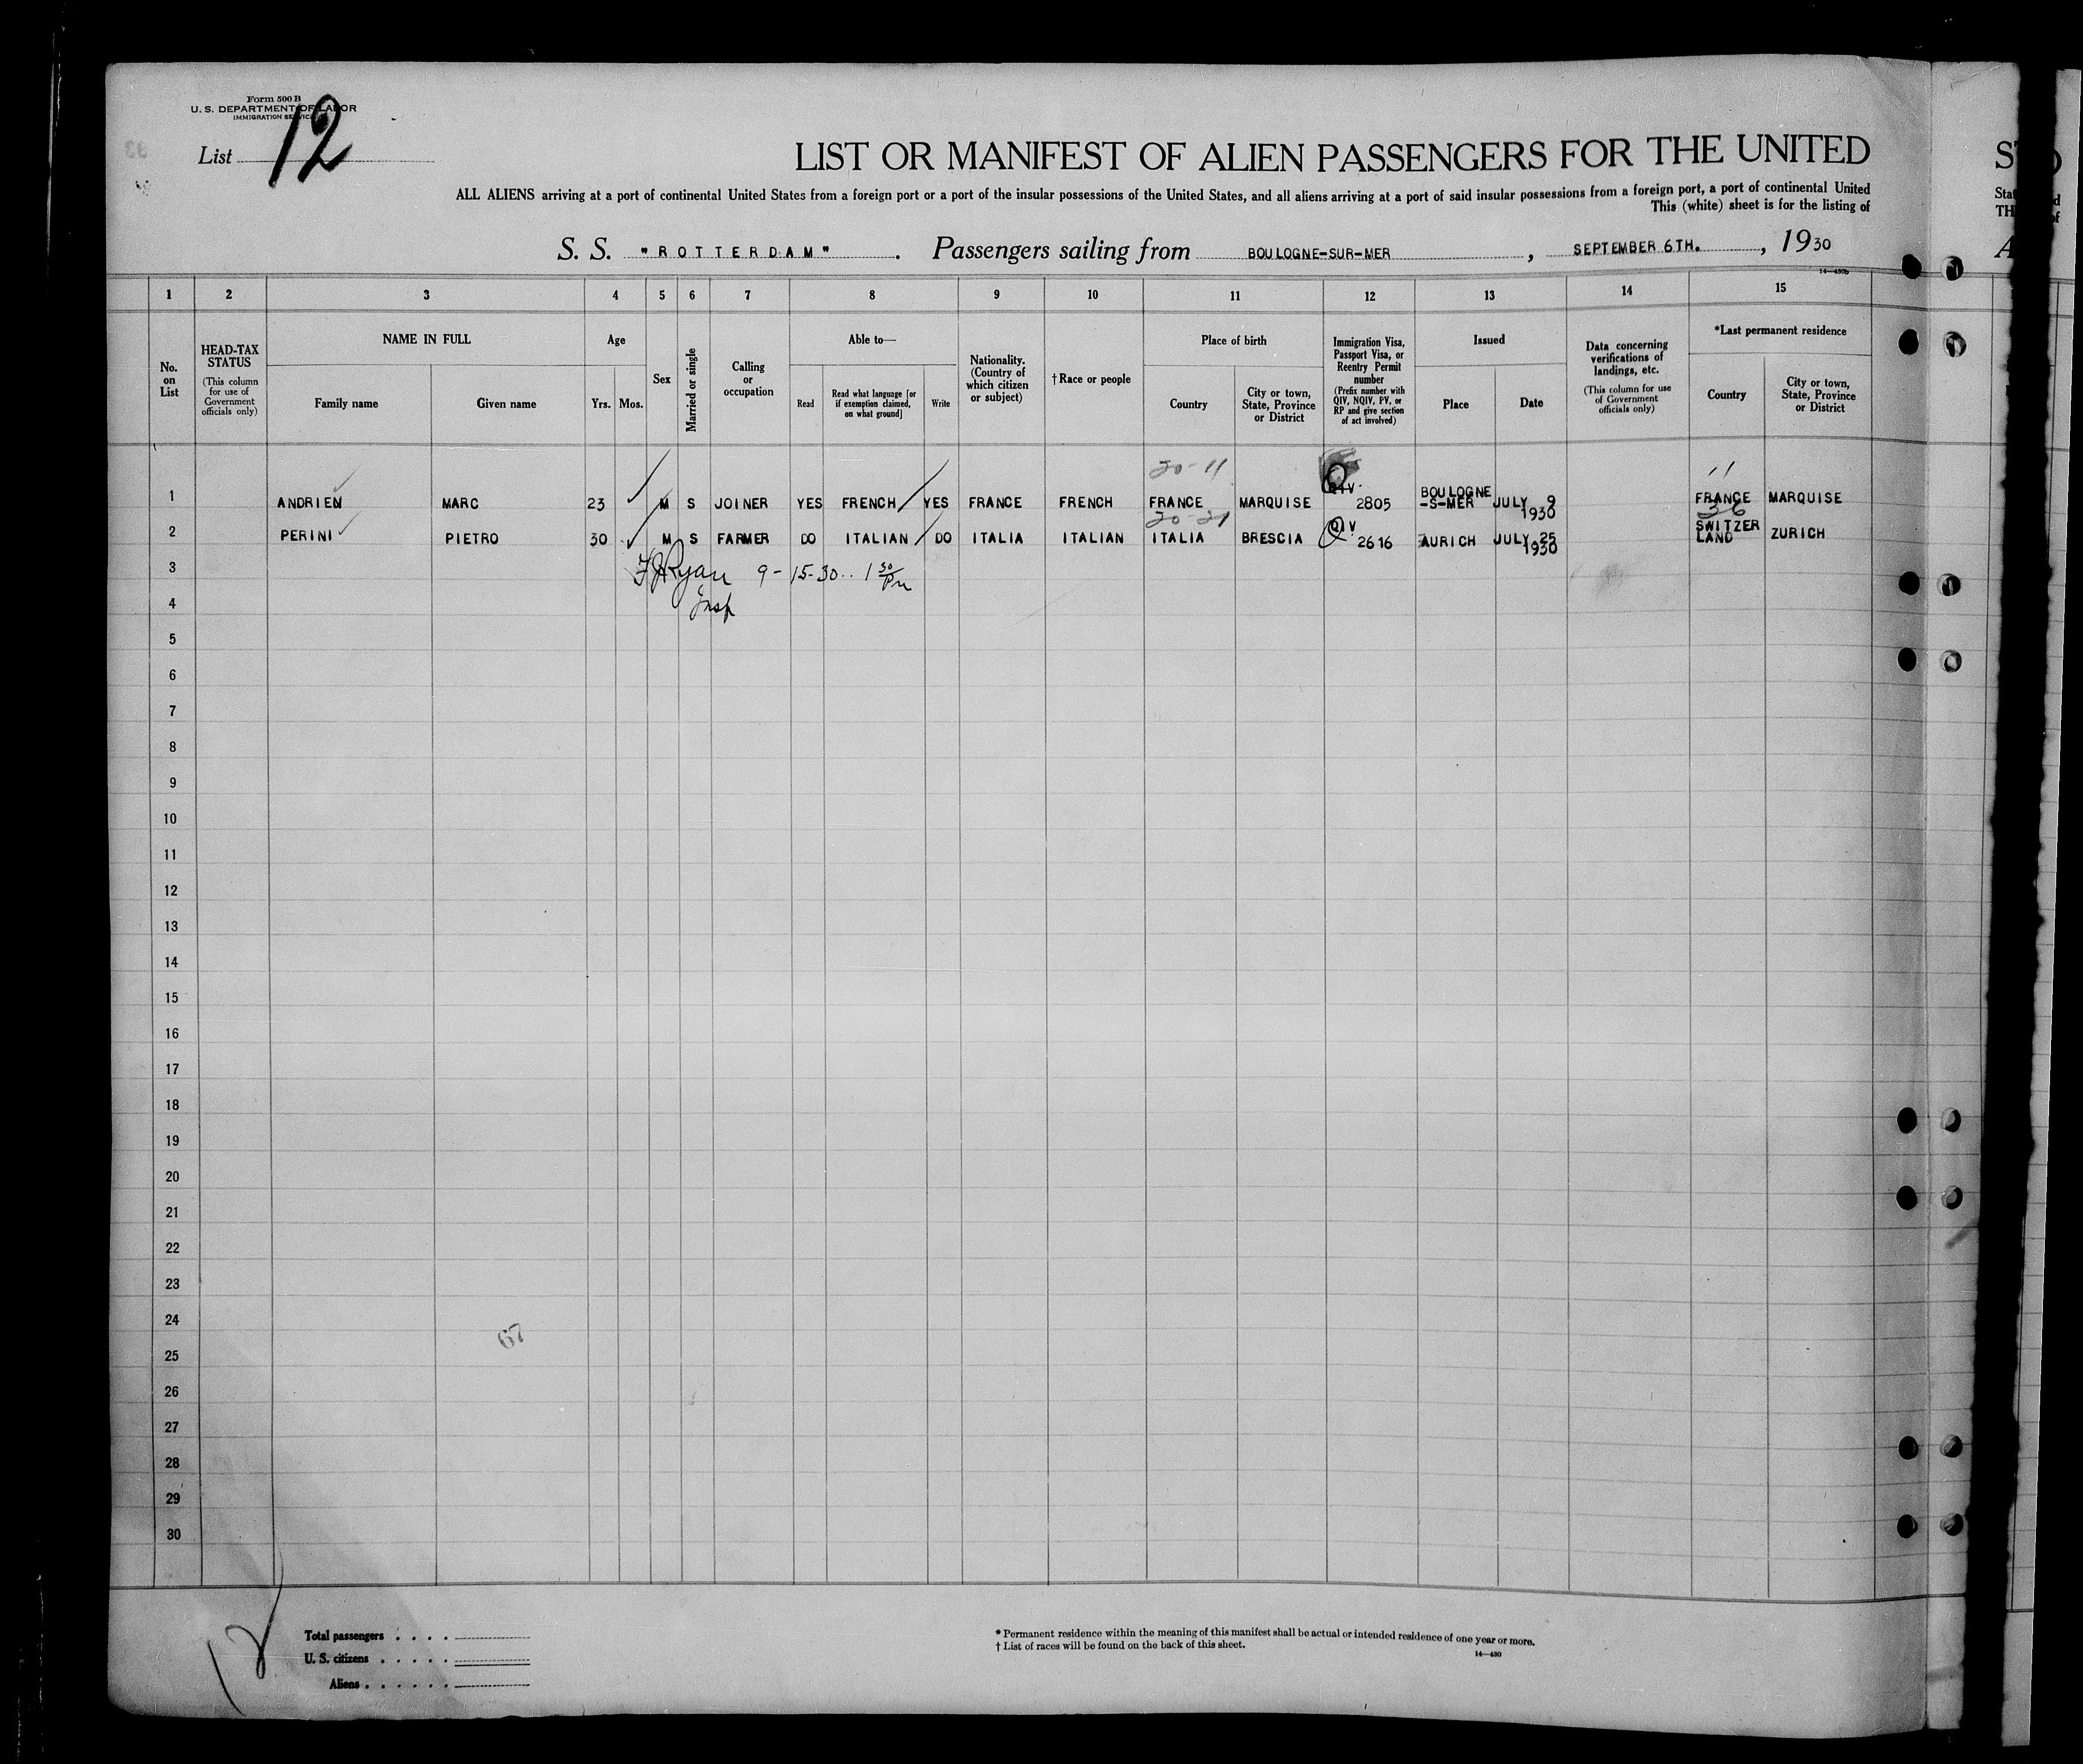 Form 500 B
U. S. DEPARTMENT OF LABOR
IMMIGRATION SERVICE
List 12
LIST OR MANIFEST OF ALIEN PASSENGERS FOR THE UNITED
ALL ALIENS arriving at a port of continental United States from a foreign port or a port of the insular possessions of the United States, and all aliens arriving at a port of said insular possessions from a foreign port, a port of continental United
This (white) sheet is for the listing of
S. S. "ROTTERDAM". Passengers sailing from BOULOGNE-SUR-MER, SEPTEMBER 6TH., 1930
14—430b
1 2 3 4 5 6 7 8 9 10 11 12 13 14 15
No. on List
HEAD-TAX STATUS
(This column for use of Government officials only)
NAME IN FULL
Family name Given name
Age
Yrs. Mos.
Sex
Married or single
Calling or occupation
Able to—
Read
Read what language [or if exemption claimed, on what ground]
Write
Nationality. (Country of which citizen or subject)
† Race or people
Place of birth
Country
City or town, State, Province or District
Immigration Visa, Passport Visa, or Reentry Permit number
(Prefix number with QIV, NQIV, PV, or RP and give section of act involved)
Issued
Place Date
Data concerning verifications of landings, etc.
(This column for use of Government officials only)
*Last permanent residence
Country
City or town, State, Province or District
20-11 11
1 ANDRIEN MARC 23 M S JOINER YES FRENCH YES FRANCE FRENCH FRANCE MARQUISE QIV. 2805 BOULOGNE -S-MER JULY 9 1930 FRANCE MARQUISE
20-21 36
2 PERINI PIETRO 30 M S FARMER DO ITALIAN DO ITALIA ITALIAN ITALIA BRESCIA QIV 2616 AURICH JULY 25 1930 SWITZER LAND ZURICH
3 F J Ryan 9-15-30.. 1 30 Pm
4 Insp
5
6
7
8
9
10
11
12
13
14
15
16
17
18
19
20
21
22
23
24
67
25
26
27
28
29
30
12
Total passengers . . . .
U. S. citizens . . . . .
Aliens . . . . . .
* Permanent residence within the meaning of this manifest shall be actual or intended residence of one year or more.
† List of races will be found on the back of this sheet.
14—430